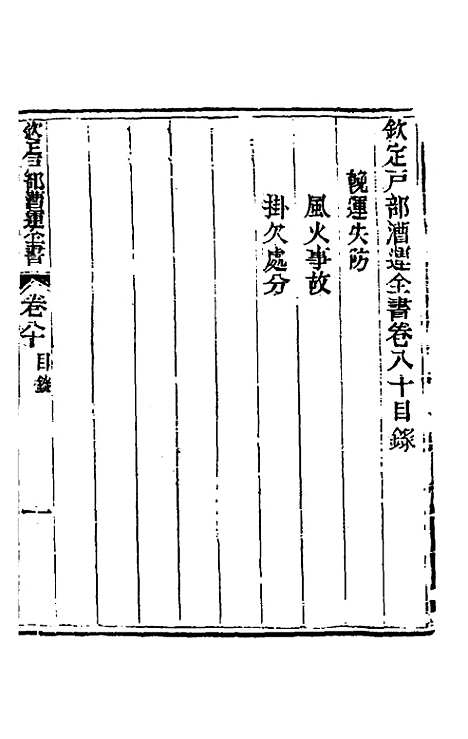 欽定戸部漕運全書卷八十目錄
輓運失防
風火事故
掛欠處分
欽定戸部漕運全書
卷八十
目錄
一